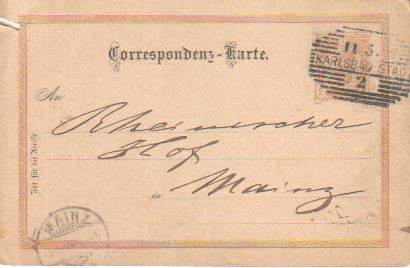 Correspondenz-Karte.
11 5
KARLSBAD STADT
2
An
Rheinischer
Hof
in Mainz
Nur für die Adresse
MAINZ